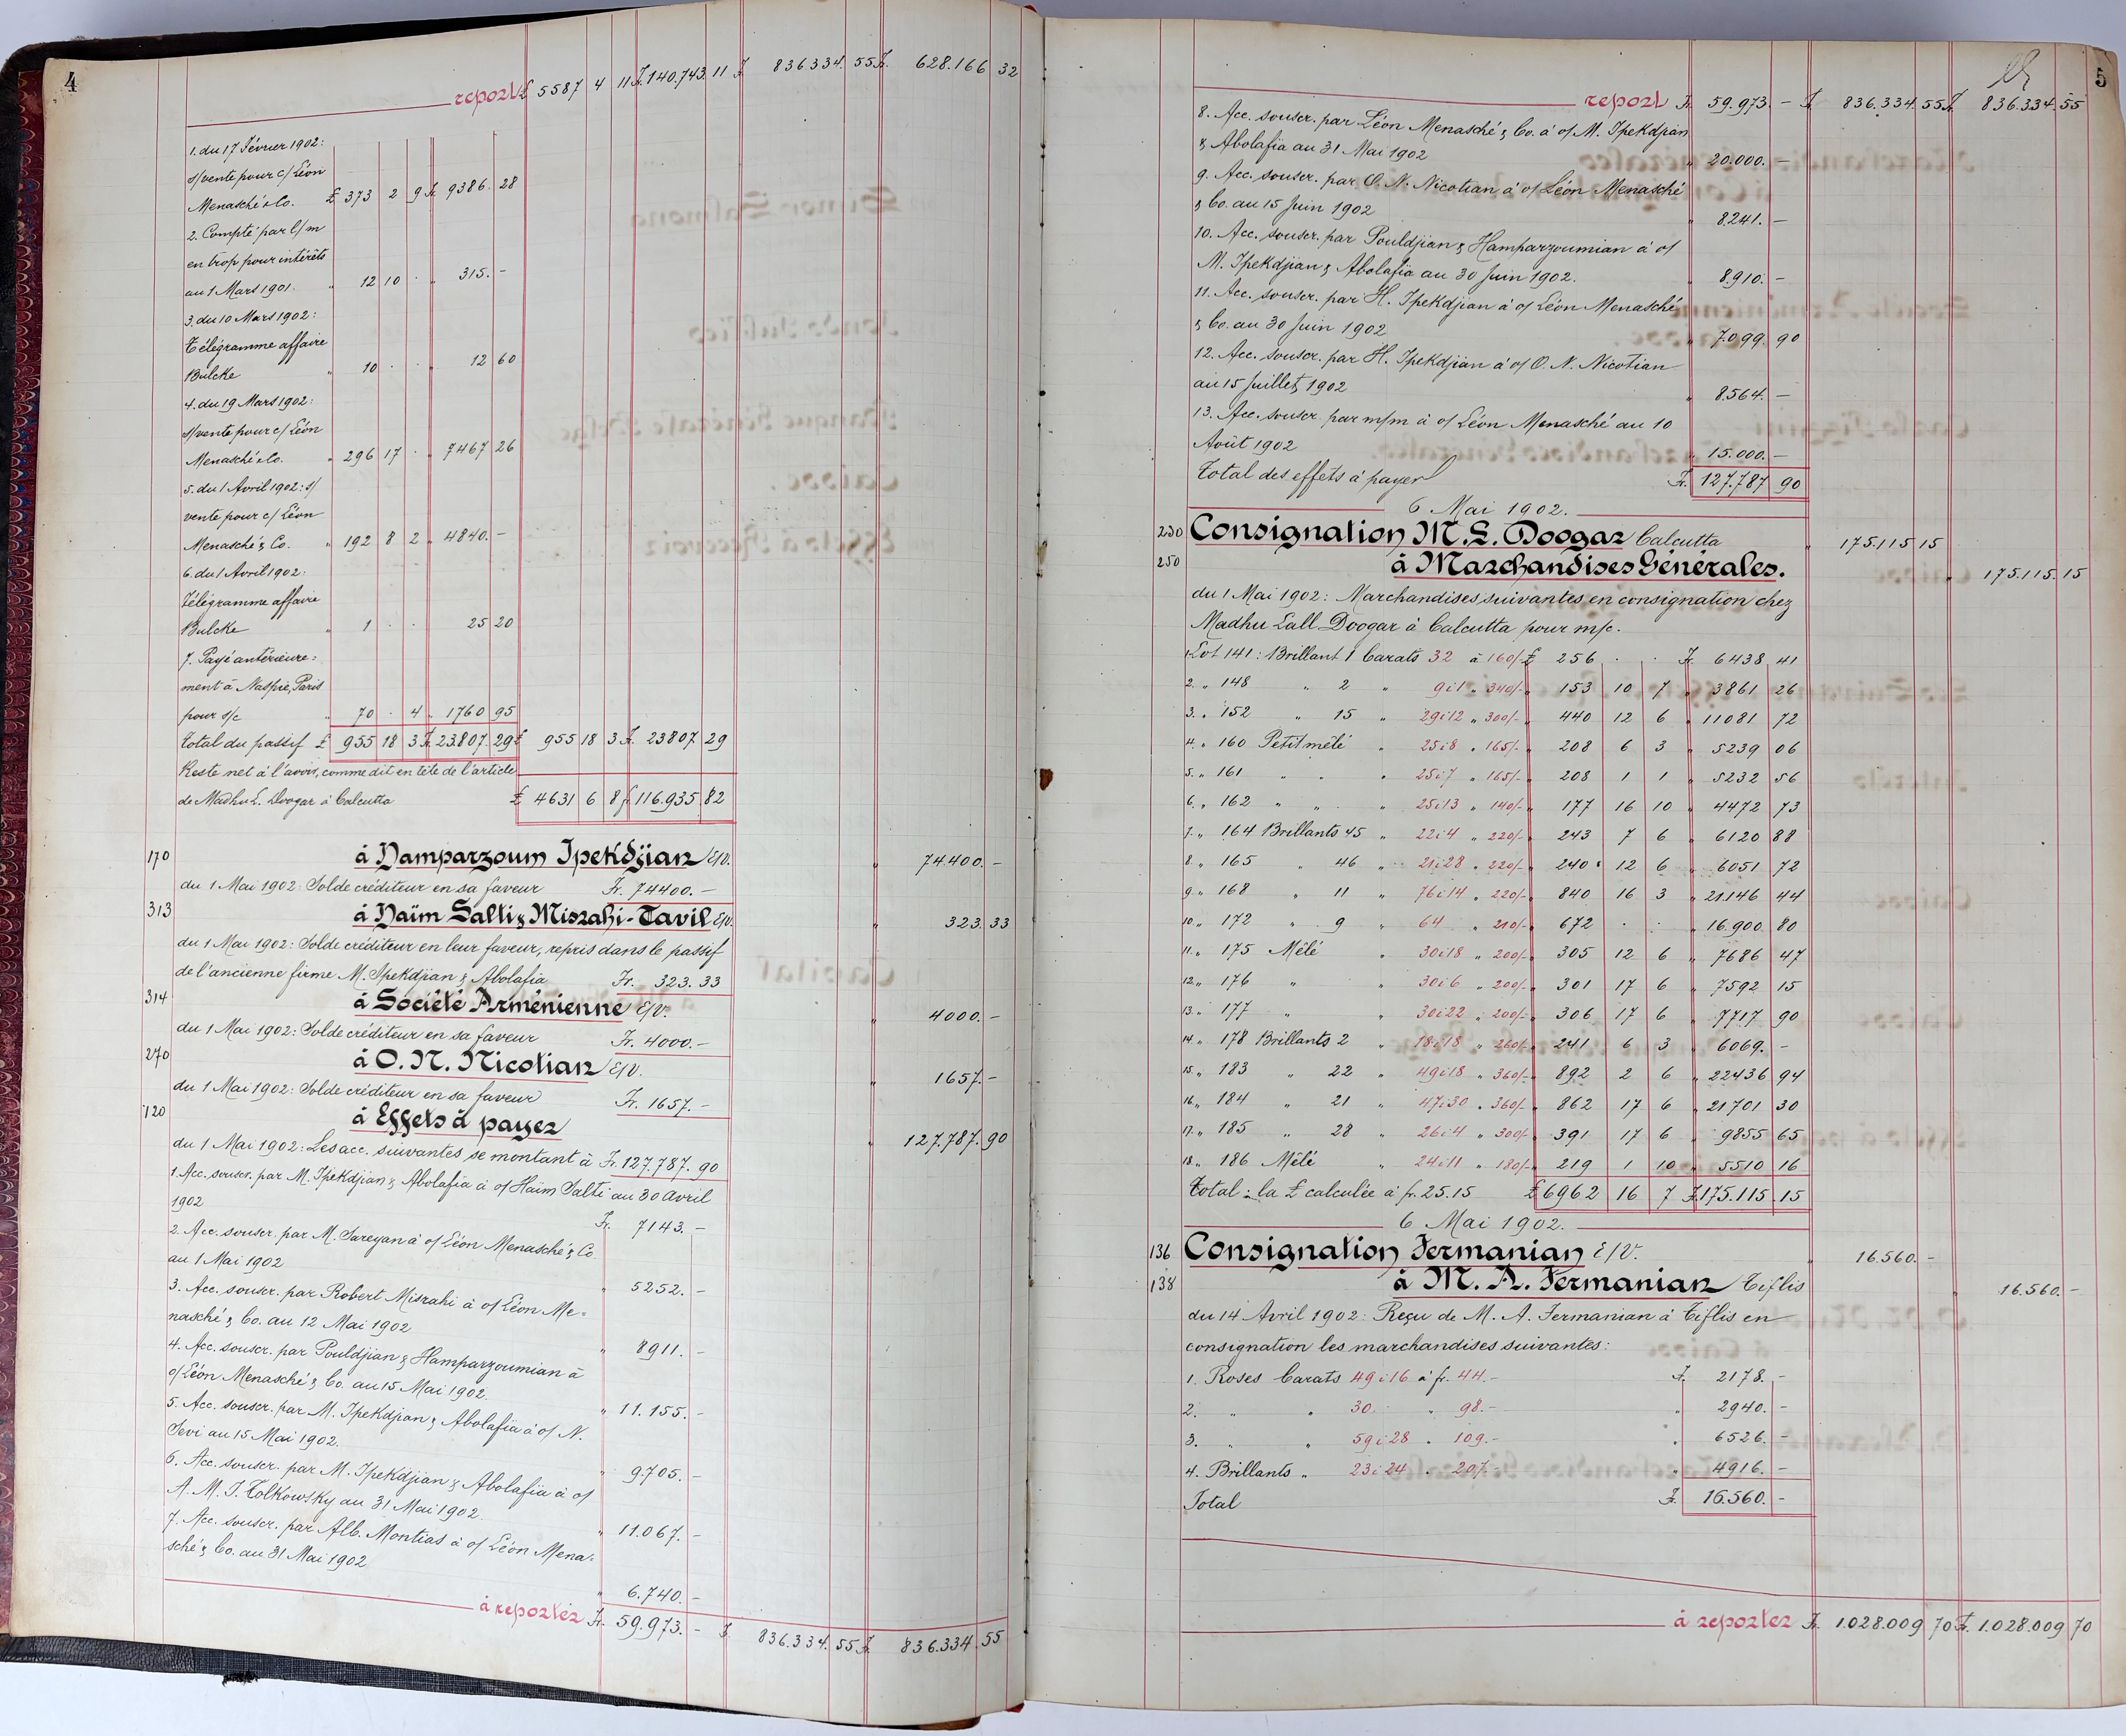 4
report £ 5587 4 11 Fr. 140.743 11 Fr. 836.334. 55 Fr. 628.166 32
1. du 17 Février 1902:
s/vente pour c/ Léon
Menasché & Co. £ 373 2 9 Fr. 9386. 28
2. Compté par l/m
en trop pour intérêts
au 1 Mars 1901. " 12 10 . " 315. -
3. du 10 Mars 1902:
Télégramme affaire
Bulcke " 10 . . " 12 60
4. du 19 Mars 1902:
s/vente pour c/ Léon
Menasché & Co. " 296 17 . " 7467 26
5. du 1 Avril 1902: s/
vente pour c/ Léon
Menasché & Co. " 192 8 2 " 4840. -
6. du 1 Avril 1902:
Télégramme affaire
Bulcke " 1 . . 25 20
7. Payé antérieure=
ment à Naspie, Paris
pour s/c " 70 . 4 " 1760 95
Total du passif £ 955 18 3 Fr. 23.807. 29 £ 955 18 3 Fr. 23807 29
Reste net à l'avoir, comme dit en tête de l'article
de Madhu L. Doogar à Calcutta £ 4631 6 8 f. 116.935 82
170 à Hamparzoum Ipekdjian E/V. " 74.400. -
du 1 Mai 1902: Solde créditeur en sa faveur Fr. 74400. -
313 à Haïm Salti & Miszahi-Tavil E/V. " 323. 33
du 1 Mai 1902: Solde créditeur en leur faveur, repris dans le passif
de l'ancienne firme M. Ipekdjian & Abolafia Fr. 323. 33
314 à Société Arménienne E/V. " 4000. -
du 1 Mai 1902: Solde créditeur en sa faveur Fr. 4000. -
270 à O. N. Nicotian E/V. " 1657. -
du 1 Mai 1902: Solde créditeur en sa faveur Fr. 1657. -
120 à Effets à payer " 127.787. 90
du 1 Mai 1902: Les acc. suivantes se montant à Fr. 127.787. 90
1. Acc. souscr. par M. Ipekdjian & Abolafia à o/ Haïm Salti au 30 Avril
1902 Fr. 7143. -
2. Acc. souscr. par M. Sareyan à o/ Léon Menasché & Co
au 1 Mai 1902 " 5252. -
3. Acc. souscr. par Robert Misrahi à o/ Léon Me=
nasché & Co. au 12 Mai 1902 " 8911. -
4. Acc. souscr. par Pouldjian & Hamparzoumian à
o/ Léon Menasché & Co. au 15 Mai 1902. " 11.155. -
5. Acc. souscr. par M. Ipekdjian & Abolafia à o/ N.
Sevi au 15 Mai 1902. " 9.705. -
6. Acc. souscr. par M. Ipekdjian & Abolafia à o/
A. M. J. Tolkowsky au 31 Mai 1902. " 11.067. -
7. Acc. souscr. par Alb. Montias à o/ Léon Mena=
sché & Co. au 31 Mai 1902 " 6.740. -
à reporter Fr. 59.973. - Fr. 836.334. 55 Fr. 836.334. 55
5
report Fr. 59.973. - Fr. 836.334. 55 Fr. 836.334. 55
8. Acc. souscr. par Léon Menasché & Co. à o/ M. Ipekdjian
& Abolafia au 31 Mai 1902 " 20.000. -
9. Acc. souscr. par O. N. Nicotian à o/ Léon Menasché
& Co. au 15 Juin 1902 " 8.241. -
10. Acc. souscr. par Pouldjian & Hamparzoumian à o/
M. Ipekdjian & Abolafia au 30 Juin 1902. " 8.910. -
11. Acc. souscr. par H. Ipekdjian à o/ Léon Menasché
& Co. au 30 Juin 1902 " 7.099. 90
12. Acc. souscr. par H. Ipekdjian à o/ O. N. Nicotian
au 15 Juillet 1902 " 8.564. -
13. Acc. souscr. par m/m à o/ Léon Menasché au 10
Août 1902 " 15.000. -
Total des effets à payer Fr. 127.787 90
6 Mai 1902.
230 Consignation M. L. Doogar Calcutta " 175.115 15
250 à Marchandises Générales. 175.115. 15
du 1 Mai 1902: Marchandises suivantes en consignation chez
Madhu Lall Doogar à Calcutta pour m/c.
Lot 141: Brillant 1 Carats 32 à 160/- £ 256 . . Fr. 6438 41
2. " 148 " 2 " 9 i 1 " 340/- " 153 10 7 " 3861 26
3. " 152 " 15 " 29 i 12 " 300/- " 440 12 6 " 11081 72
4. " 160 Petit mêlé " 25 i 8 " 165/- " 208 6 3 " 5239 06
5. " 161 " " " 25 i 7 " 165/- " 208 1 1 " 5232 56
6. " 162 " " " 25 i 13 " 140/- " 177 16 10 " 4472 73
7. " 164 Brillants 45 " 22 i 4 " 220/- " 243 7 6 " 6120 88
8. " 165 " 46 " 21 i 28 " 220/- " 240 12 6 " 6051 72
9. " 168 " 11 " 76 i 14 " 220/- " 840 16 3 " 21.146 44
10. " 172 " 9 " 64 " 210/- " 672 . . " 16.900 80
11. " 175 Mêlé " 30 i 18 " 200/- " 305 12 6 " 7686 47
12. " 176 " " 30 i 6 " 200/- " 301 17 6 " 7592 15
13. " 177 " " 30 i 22 " 200/- " 306 17 6 " 7717 90
14. " 178 Brillants 2 " 18 i 18 " 260/- " 241 6 3 " 6069. -
15. " 183 " 22 " 49 i 18 " 360/- " 892 2 6 " 22436 94
16. " 184 " 21 " 47 i 30 " 360/- " 862 17 6 " 21701 30
17. " 185 " 28 " 26 i 4 " 300/- " 391 17 6 " 9855 65
18. " 186 Mêlé " 24 i 11 " 180/- " 219 1 10 " 5510 16
Total: la £ calculée à fr. 25.15 £ 6962 16 7 Fr. 175.115. 15
6 Mai 1902.
136 Consignation Fermanian E/V. " 16.560. -
138 à M. A. Fermanian Tiflis " 16.560. -
du 14 Avril 1902: Reçu de M. A. Fermanian à Tiflis en
consignation les marchandises suivantes:
1. Roses Carats 49 i 16 à fr. 44. - Fr. 2178. -
2. " " 30. " 98. - " 2940. -
3. " " 59 i 28 " 109. - " 6526. -
4. Brillants " 23 i 24 " 207. - " 4916. -
Total Fr. 16.560. -
à reporter Fr. 1.028.009 70 Fr. 1.028.009 70